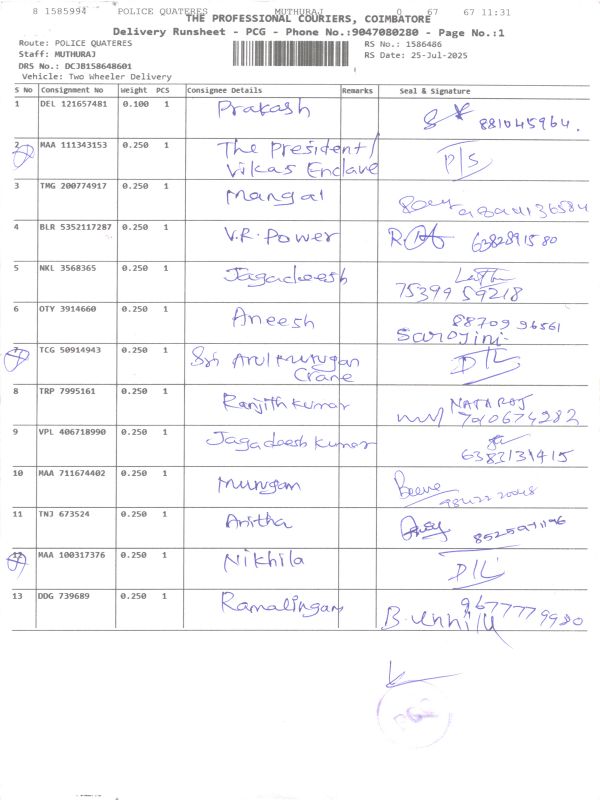 8 1585994 POLICE QUATERES MUTHURAJ 0 67 67 11:31
THE PROFESSIONAL COURIERS, COIMBATORE
Delivery Runsheet - PCG - Phone No.:9047080280 - Page No.:1
Route: POLICE QUATERES
RS No.: 1586486
Staff: MUTHURAJ
RS Date: 25-Jul-2025
DRS No.: DCJB158648601
Vehicle: Two Wheeler Delivery
S No Consignment No Weight PCS Consignee Details Remarks Seal & Signature
1 DEL 121657481 0.100 1 Prakash 881045964.
2 MAA 111343153 0.250 1 The President/
Vikas Enclave D/S
3 TMG 200774917 0.250 1 Mangal
4 BLR 5352117287 0.250 1 V.R. Power 6382891580
5 NKL 3568365 0.250 1 Jagadeesh
75399 59218
6 OTY 3914660 0.250 1 Aneesh 88709 96561
Sarojini
7 TCG 50914943 0.250 1 Sri Arul Murugan
Crane D/L
8 TRP 7995161 0.250 1 Ranjith kumar NATARAJ
9 VPL 406718990 0.250 1 Jagadeesh kumar
6383131415
10 MAA 711674402 0.250 1 Murugan
11 TNJ 673524 0.250 1 Anitha
12 MAA 100317376 0.250 1 Nikhila D/L
13 DDG 739689 0.250 1 Ramalingam 9677779980
PCG